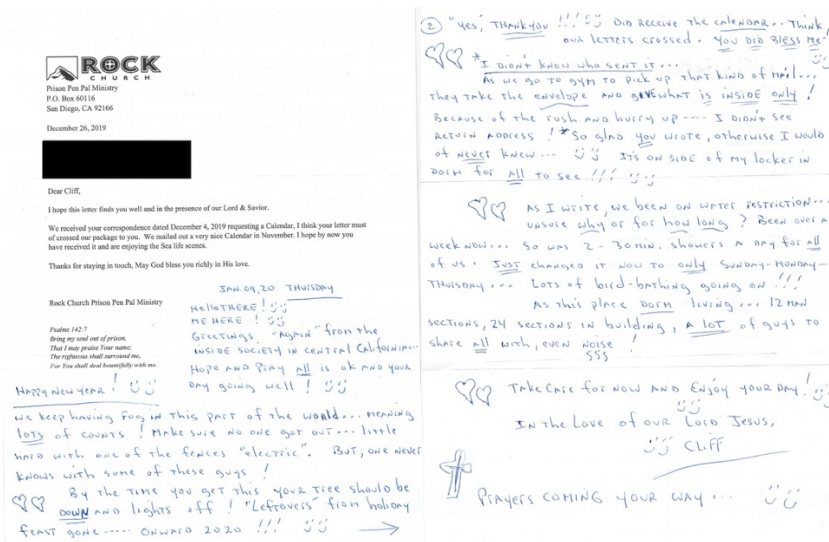 ROCK
CHURCH
Prison Pen Pal Ministry
P.O. Box 60116
San Diego, CA 92166
December 26, 2019
Dear Cliff,
I hope this letter finds you well and in the presence of our Lord & Savior.
We received your correspondence dated December 4, 2019 requesting a Calendar, I think your letter must
of crossed our package to you. We mailed out a very nice Calendar in November. I hope by now you
have received it and are enjoying the Sea life scenes.
Thanks for staying in touch, May God bless you richly in His love.
Rock Church Prison Pen Pal Ministry
Psalms 142:7
Bring my soul out of prison,
That I may praise Your name;
The righteous shall surround me,
For You shall deal bountifully with me.
JAN. 09, 20 THURSDAY
Hello THERE!
ME HERE!
Greetings "Again" from the
INSIDE SOCIETY IN CENTRAL CALIFORNIA...
Hope and Pray All is ok AND YOUR
DAY going well!
HAPPY NEW YEAR!
We keep HAVING FOG IN THIS PART OF THE WORLD... MEANING
LOTS OF COUNTS! MAKE SURE NO ONE GOT OUT... little
HARD WITH ONE OF THE FENCES "electric". BUT, ONE NEVER
KNOWS WITH SOME OF THESE GUYS!
By THE TIME YOU GET THIS YOUR TREE SHOULD BE
DOWN AND LIGHTS OFF! "LEFTOVERS" FROM HOLIDAY
FEAST GONE ----- ONWARD 2020 !!!
2 "Yes," THANK YOU !!! DID RECEIVE THE CALENDAR... THINK
OUR LETTERS CROSSED. YOU DID BLESS ME!
*I DIDN'T KNOW WHO SENT IT...
AS WE GO TO GYM TO PICK UP THAT KIND OF MAIL...
THEY TAKE THE ENVELOPE AND GIVE WHAT IS INSIDE ONLY!
BECAUSE OF THE RUSH AND HURRY UP ---- I DIDN'T SEE
RETURN ADDRESS! *SO GLAD YOU WROTE, OTHERWISE I WOULD
OF NEVER KNEW... IT'S ON SIDE OF MY LOCKER IN
DORM FOR All TO SEE !!!
AS I WRITE, WE BEEN ON WATER RESTRICTION...
UNSURE WHY OR FOR HOW LONG? BEEN OVER A
WEEK NOW... SO WAS 2 - 30 MIN. SHOWERS A DAY FOR All
OF US. JUST CHANGED IT NOW TO ONLY SUNDAY-MONDAY-
THURSDAY... LOTS OF BIRD-BATHING GOING ON !!!
AS THIS PLACE DORM LIVING... 12 MAN
SECTIONS, 24 SECTIONS IN BUILDING, A LOT OF GUYS TO
SHARE All WITH, EVEN NOISE!
TAKE CARE FOR NOW AND ENJOY YOUR DAY!
IN THE LOVE OF OUR LORD JESUS,
Cliff
PRAYERS COMING YOUR WAY...